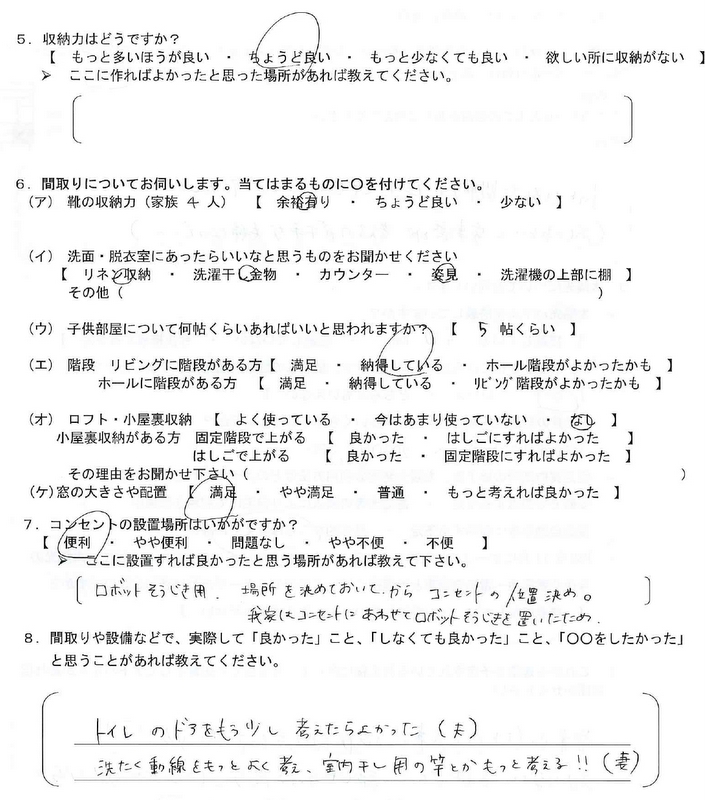 5．収納力はどうですか？
【 もっと多いほうが良い ・ ちょうど良い ・ もっと少なくても良い ・ 欲しい所に収納がない 】
➢ ここに作ればよかったと思った場所があれば教えてください。
6．間取りについてお伺いします。当てはまるものに〇を付けてください。
（ア） 靴の収納力（家族 4 人） 【 余裕有り ・ ちょうど良い ・ 少ない 】
（イ） 洗面・脱衣室にあったらいいなと思うものをお聞かせください
【 リネン収納 ・ 洗濯干し金物 ・ カウンター ・ 姿見 ・ 洗濯機の上部に棚 】
その他（ ）
（ウ） 子供部屋について何帖くらいあればいいと思われますか？ 【 5 帖くらい 】
（エ） 階段 リビングに階段がある方【 満足 ・ 納得している ・ ホール階段がよかったかも 】
ホールに階段がある方 【 満足 ・ 納得している ・ リビング階段がよかったかも 】
（オ） ロフト・小屋裏収納 【 よく使っている ・ 今はあまり使っていない ・ なし 】
小屋裏収納がある方 固定階段で上がる 【 良かった ・ はしごにすればよかった 】
はしごで上がる 【 良かった ・ 固定階段にすればよかった 】
その理由をお聞かせ下さい（ ）
（ケ）窓の大きさや配置 【 満足 ・ やや満足 ・ 普通 ・ もっと考えれば良かった 】
7．コンセントの設置場所はいかがですか？
【 便利 ・ やや便利 ・ 問題なし ・ やや不便 ・ 不便 】
➢ ここに設置すれば良かったと思う場所があれば教えて下さい。
ロボットそうじき用．場所を決めておいてからコンセントの位置決め。
我家はコンセントにあわせてロボットそうじきを置いたため．
8．間取りや設備などで、実際して「良かった」こと、「しなくても良かった」こと、「〇〇をしたかった」
と思うことがあれば教えてください。
トイレのドアをもう少し考えたらよかった（夫）
洗たく動線をもっとよく考え、室内干し用の竿とかもっと考える!!（妻）